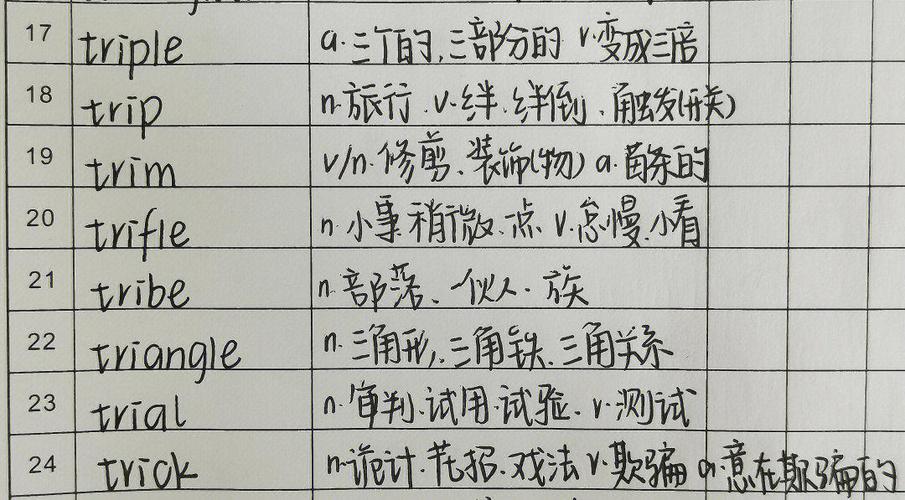 17 triple a.三丁的,三部分的 v.变成三倍
18 trip n.旅行.v.绊.绊倒.触发(开关)
19 trim v/n.修剪.装饰(物) a.苗条的
20 trifle n.小事.稍微.一点 v.怠慢.小看
21 tribe n.部落、一伙人.族
22 triangle n.三角形,三角铁.三角关系
23 trial n.审判.试用.试验.v.测试
24 trick n.诡计.花招.戏法 v.欺骗 a.意在欺骗的